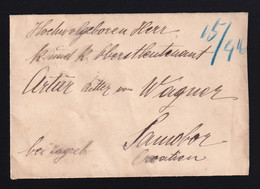 Hochwolgeboren Herr
k. und k. Oberstleutenant
Artur Ritter von Wagner
Samobor
bei Zagreb
Croatien
15/94